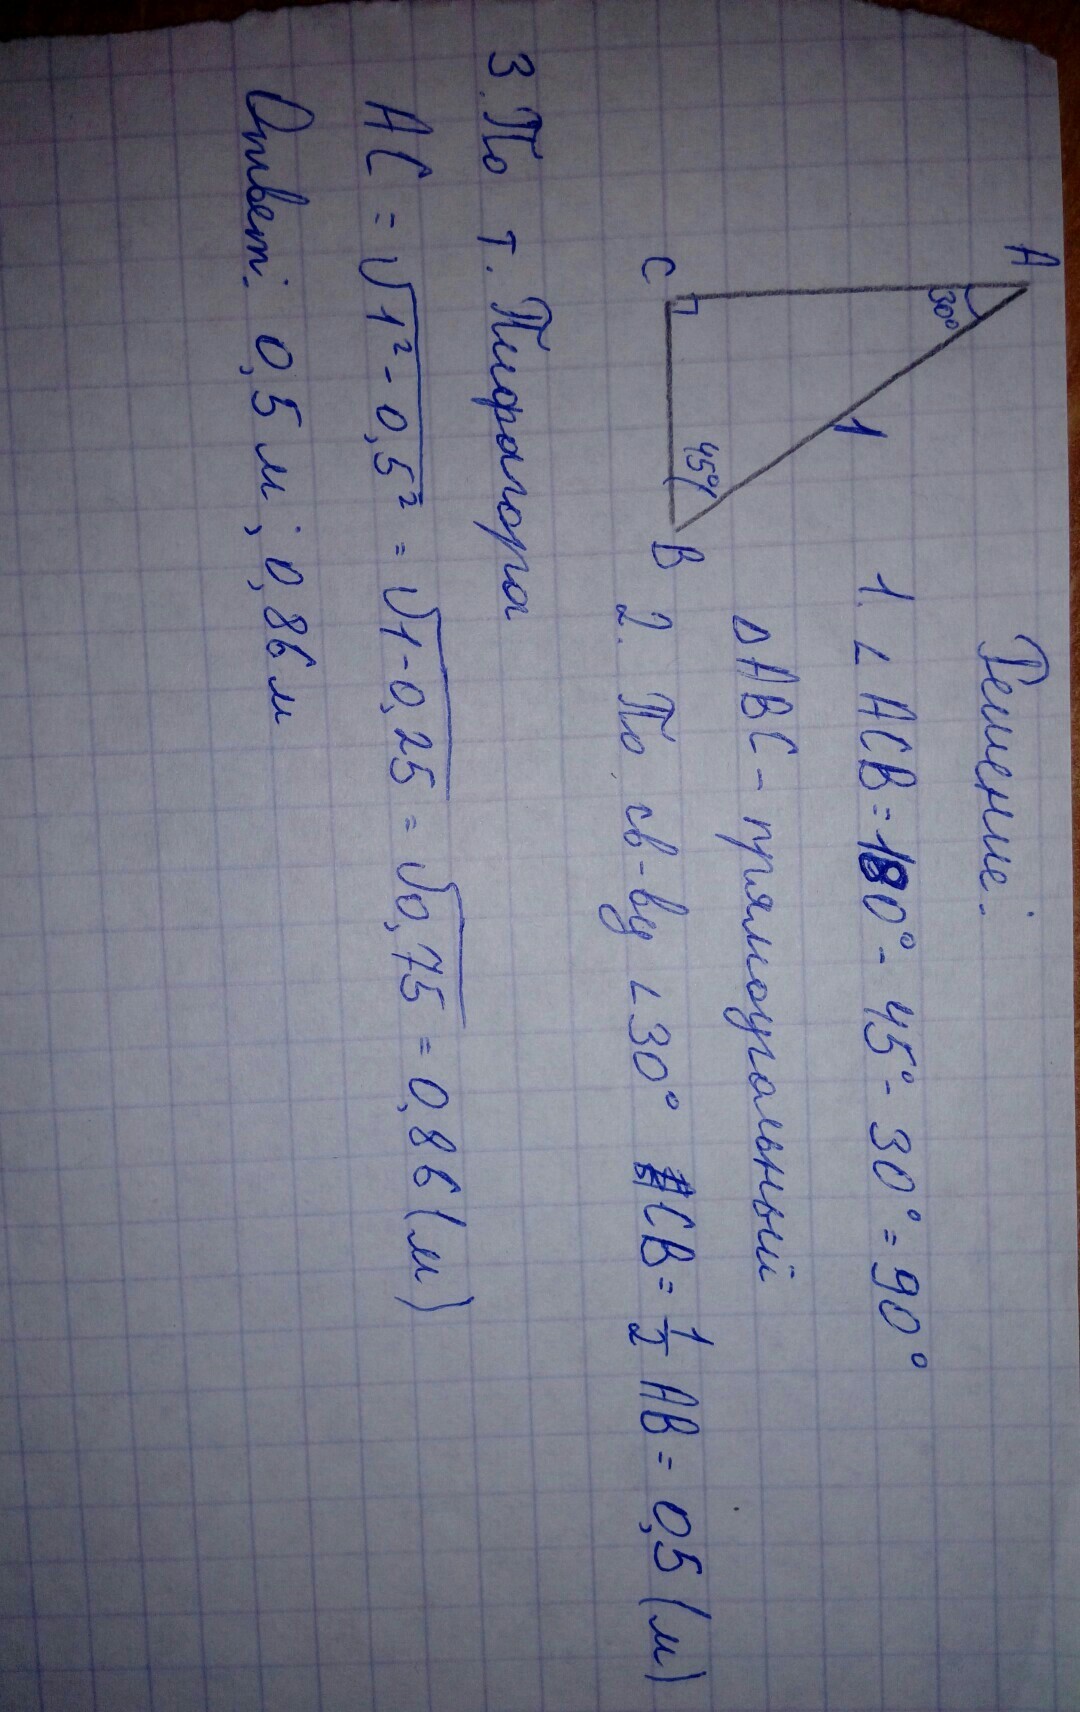 Решение:
A
30°
1
C
45°
B
1. ∠ ACB = 180° - 45° - 30° = 90°
ΔABC - прямоугальный
2. По св-ву ∠30° CB = 1/2 AB = 0,5 (м)
3. По т. Пифагора
AC = √1² - 0,5² = √1 - 0,25 = √0,75 = 0,86 (м)
Ответ: 0,5 м; 0,86 м